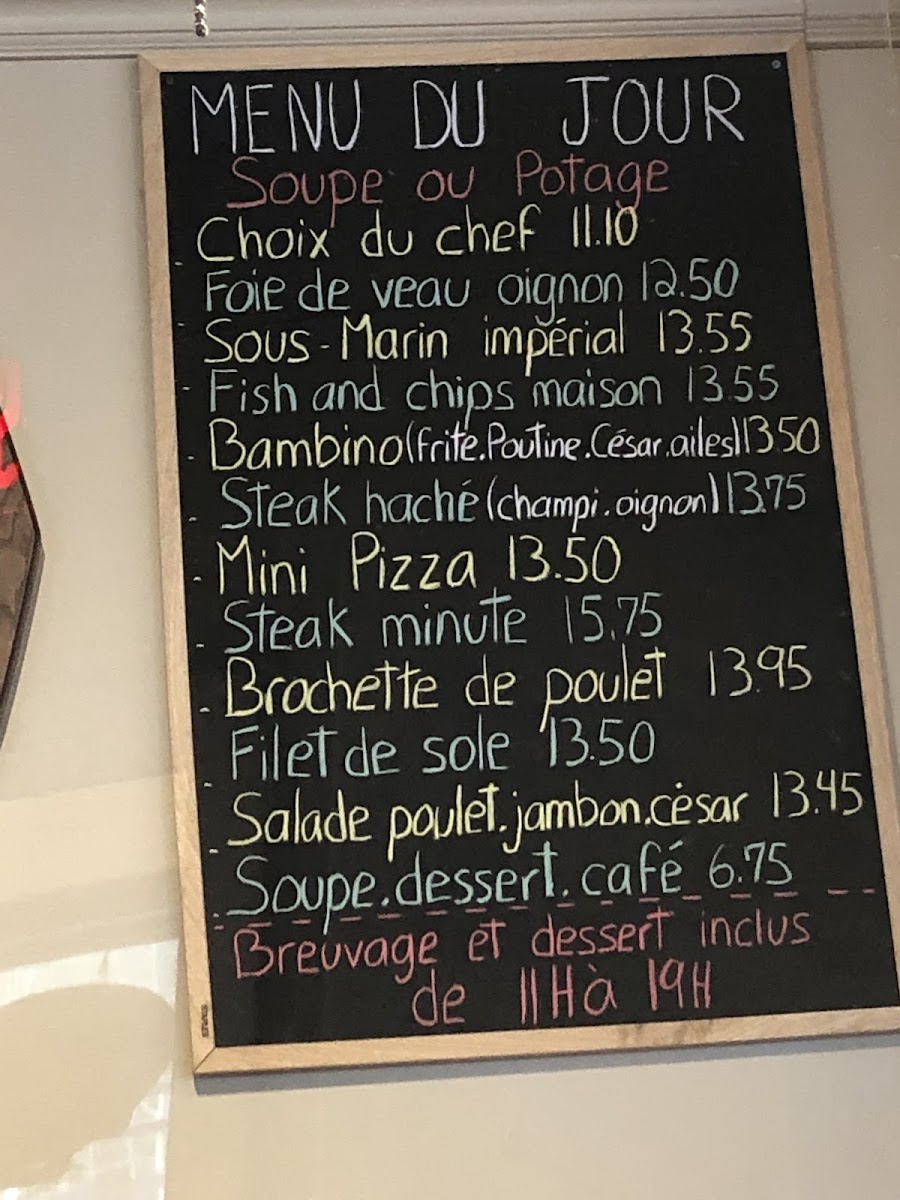 MENU DU JOUR
Soupe ou Potage
- Choix du chef 11.10
- Foie de veau oignon 12.50
- Sous-Marin impérial 13.55
- Fish and chips maison 13.55
- Bambino (frite.Poutine.César.ailes) 13.50
- Steak haché (champi.oignon) 13.75
- Mini Pizza 13.50
- Steak minute 15.75
- Brochette de poulet 13.95
- Filet de sole 13.50
- Salade poulet.jambon.césar 13.45
- Soupe.dessert.café 6.75
Breuvage et dessert inclus
de 11H à 19H